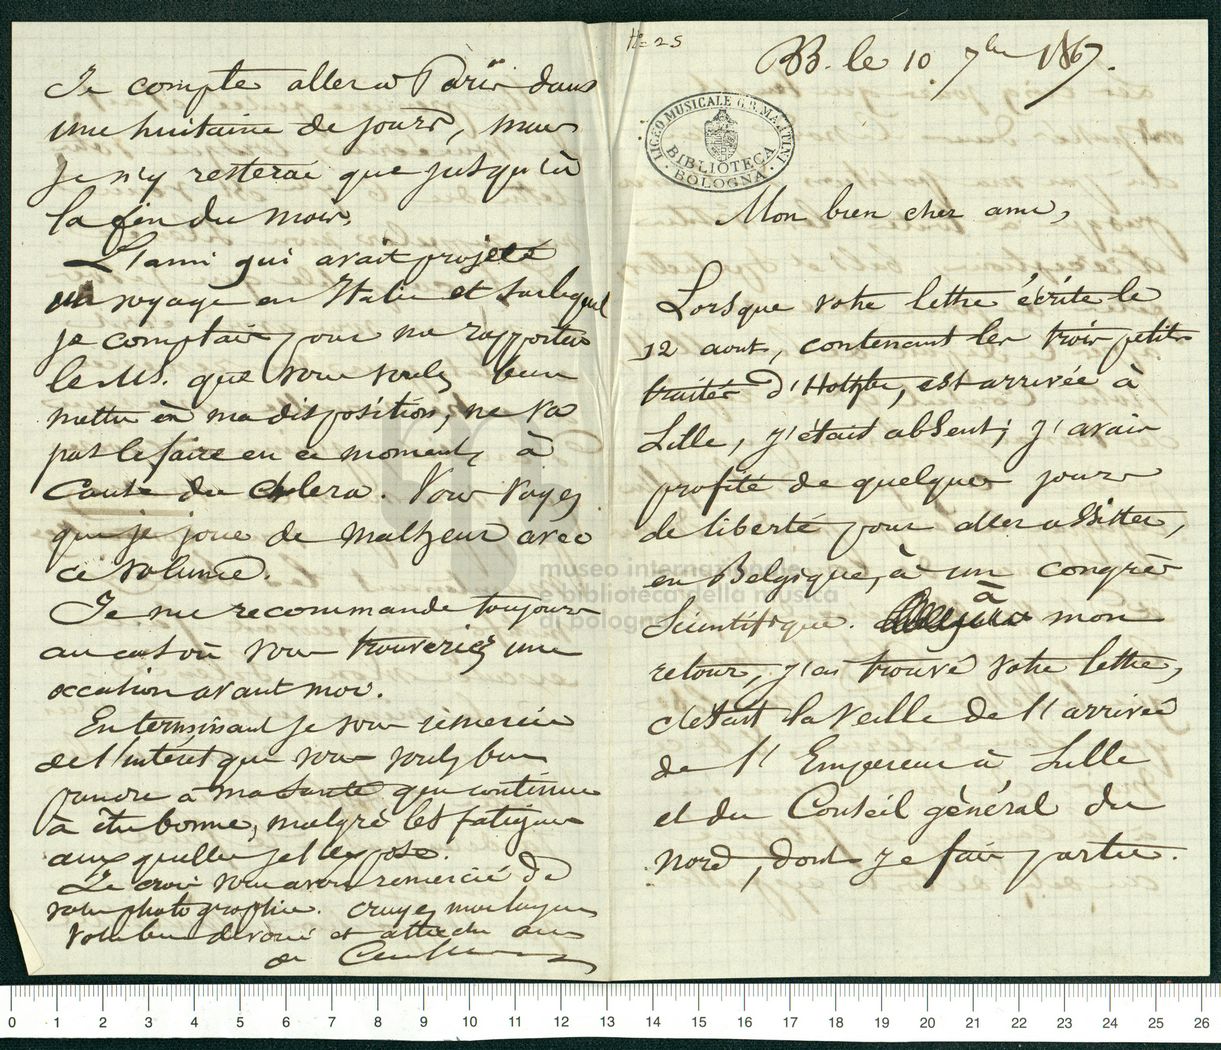 N° 25
B. le 10 7bre 1867.
LICEO MUSICALE G.B. MARTINI
BIBLIOTECA
BOLOGNA
Mon bien cher ami,
Lorsque votre lettre écrite le
12 aout, contenant les trois petits
traités d'Hothby, est arrivée à
Lille, j'étais absent; j'avais
profité de quelques jours
de liberté pour aller assister,
en Belgique, à un congrès
Scientifique. à mon
retour, j'ai trouvé votre lettre,
c'était la veille de l'arrivée
de l'Empereur à Lille
et du Conseil général du
nord, dont je fais partie.
Je compte aller à Paris dans
une huitaine de jours, mais
je n'y resterai que jusqu'à
la fin du mois.
L'ami qui avait projeté
un voyage en Italie et sur lequel
je comptais pour me rapporter
le MS. que vous voulez bien
mettre à ma disposition, ne va
pas le faire en ce moment, à
cause du cholera. Vous voyez
que je joue de malheur avec
ce volume.
Je me recommande toujours
au cas où vous trouveriez une
occasion avant moi.
En terminant je vous remercie
de l'interet que vous voulez bien
prendre à ma santé qui continue
à être bonne, malgré les fatigues
aux quelles je l'expose.
Je crois vous avoir remercié de
votre photographie. Croyez moi toujours
Votre bien devoué et attaché ami
de Coussemaker
museo internazionale
e biblioteca della musica
di bologna
0 1 2 3 4 5 6 7 8 9 10 11 12 13 14 15 16 17 18 19 20 21 22 23 24 25 26